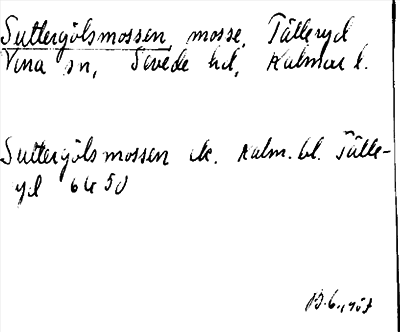 Suttergölsmossen, mosse, Tälleryd
Vena sn, Sevede hd, Kalmar l.
Suttergölsmossen ek. Kalm. bl. Tälle-
ryd 6G 5d